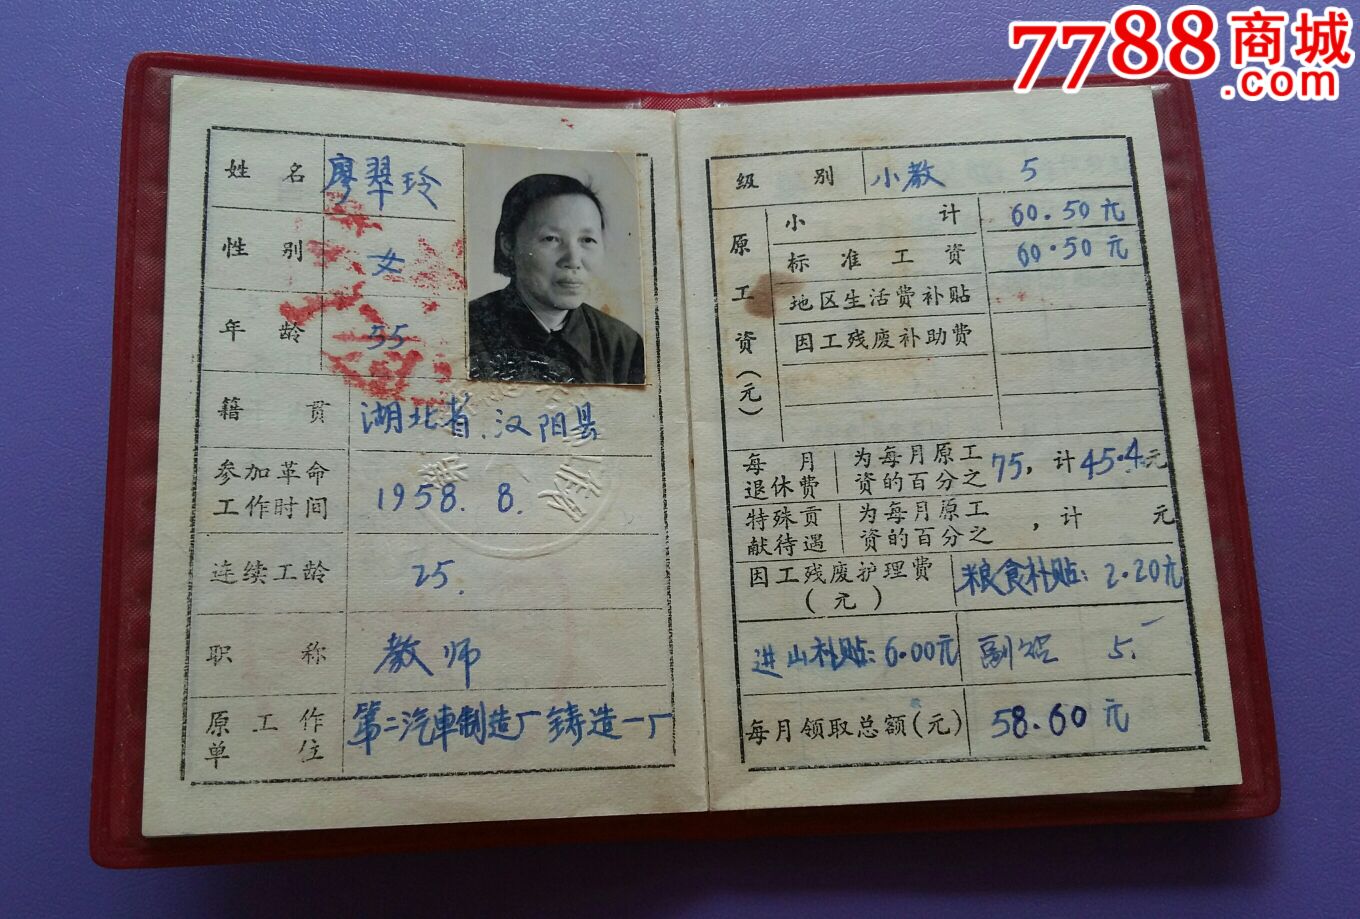 7788商城
.com
姓名 廖翠玲
性别 女
年龄 55
籍贯 湖北省.汉阳县
参加革命
工作时间 1958.8.
连续工龄 25.
职称 教师
原工作
单位 第二汽車制造厂铸造一厂
级别 小教 5
原工资(元)
小计 60.50元
标准工资 60.50元
地区生活费补贴
因工残废补助费
每月
退休费
为每月原工
资的百分之 75, 计 45.4元
特殊贡
献待遇
为每月原工
资的百分之 , 计 元
因工残废护理费
(元)
粮食补贴: 2.20元
进山补贴: 6.00元
副 5.-
每月领取总额(元) 58.60元